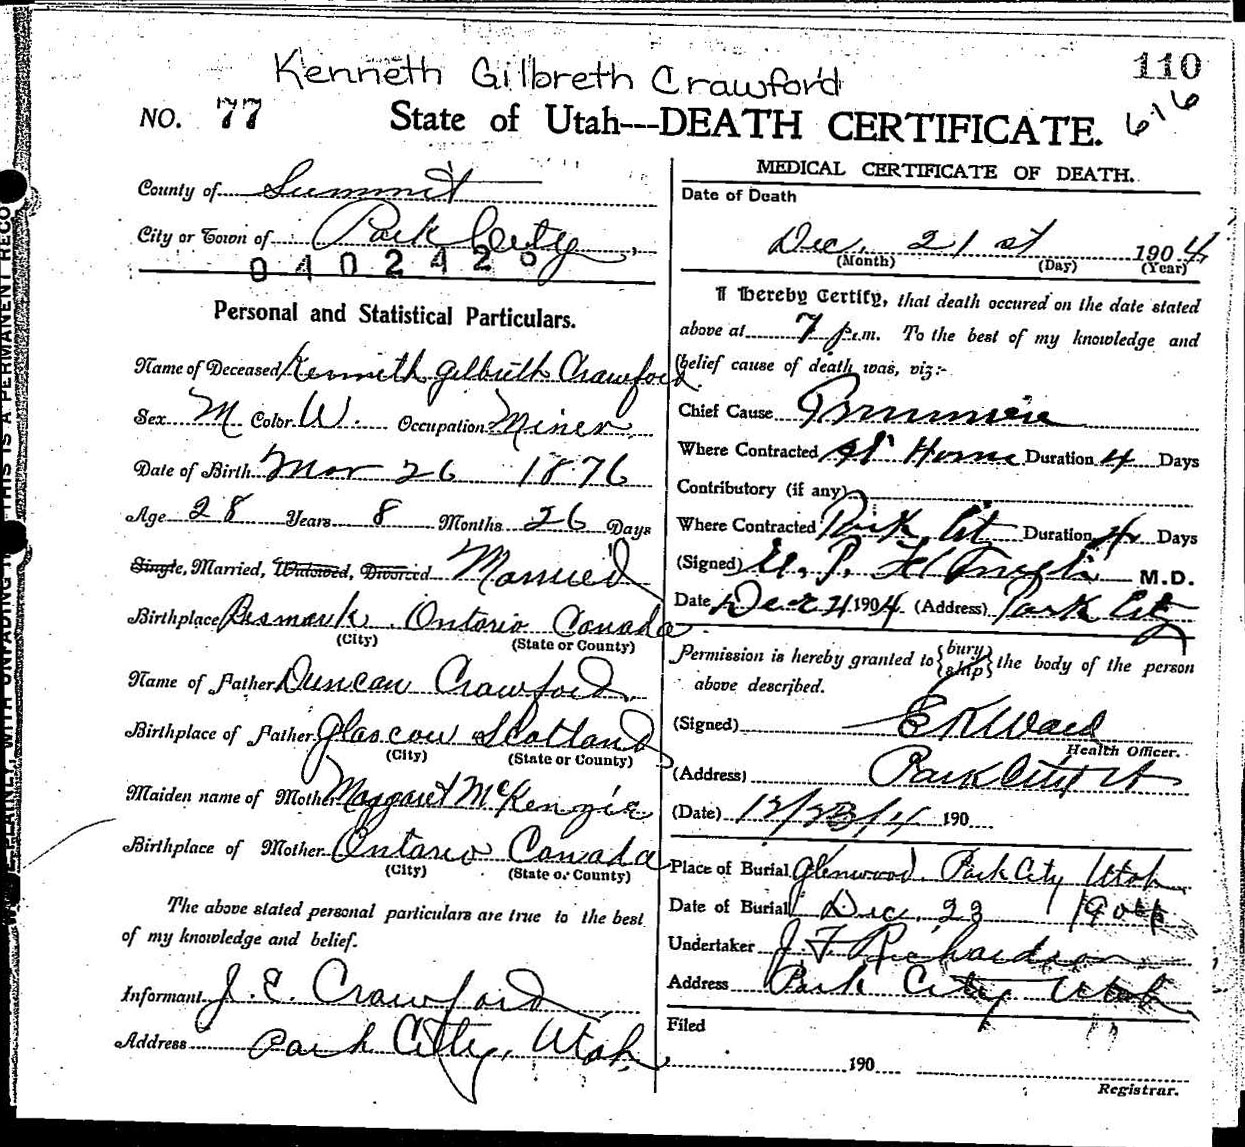 Kenneth Gilbreth Crawford
110
616
NO. 77
State of Utah---DEATH CERTIFICATE.
County of Summit
City or Town of Park City,
040242
Personal and Statistical Particulars.
Name of Deceased Kenneth Gilbreth Crawford
Sex M Color W. Occupation Miner
Date of Birth Mar 26 1876
Age 28 Years 8 Months 26 Days
Single, Married, Widowed, Divorced Married
Birthplace Bismark. Ontario Canada
(City) (State or County)
Name of Father Duncan Crawford
Birthplace of Father Glascow Scotland
(City) (State or County)
Maiden name of Mother Margaret McKenzie
Birthplace of Mother Ontario Canada
(City) (State or County)
The above stated personal particulars are true to the best
of my knowledge and belief.
Informant J. E. Crawford
Address Park City, Utah.
MEDICAL CERTIFICATE OF DEATH.
Date of Death
Dec. 21st 1904
(Month) (Day) (Year)
I Hereby Certify, that death occured on the date stated
above at 7 p.m. To the best of my knowledge and
belief cause of death was, viz:-
Chief Cause
Where Contracted At Home Duration 4 Days
Contributory (if any)
Where Contracted Park Cit Duration 4 Days
(Signed) M.D.
Date Dec 21 1904. (Address) Park City
Permission is hereby granted to {bury ship} the body of the person
above described.
(Signed) E K Ward
Health Officer.
(Address) Park City Ut
(Date) 12/23/4 190
Place of Burial Glenwood. Park City Utah
Date of Burial Dec. 23 1904
Undertaker J. F. Richardson
Address Park City Utah
Filed
190
Registrar.
THIS IS A PERMANENT RECO
PLAINLY, WITH UNFADING